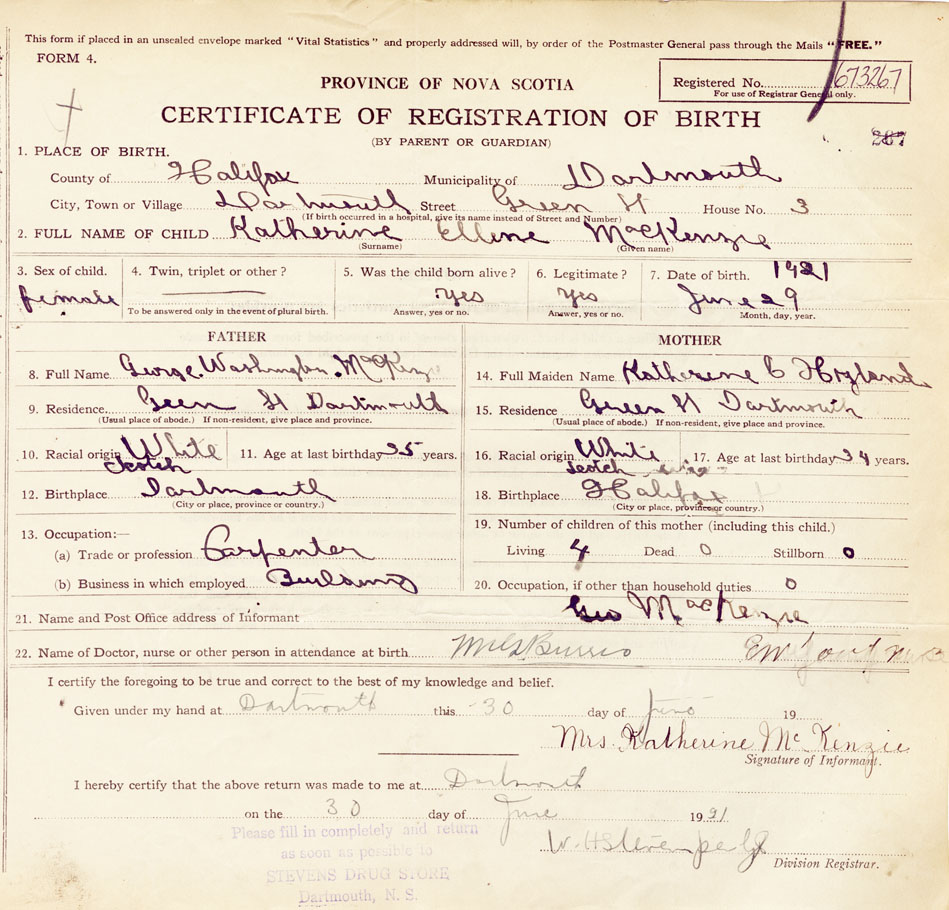 This form if placed in an unsealed envelope marked "Vital Statistics" and properly addressed will, by order of the Postmaster General pass through the Mails "FREE."
FORM 4.
PROVINCE OF NOVA SCOTIA
Registered No. 673267
For use of Registrar General only.
CERTIFICATE OF REGISTRATION OF BIRTH
(BY PARENT OR GUARDIAN)
1. PLACE OF BIRTH.
County of Halifax Municipality of Dartmouth
City, Town or Village Dartmouth Street Green St House No. 3
(If birth occurred in a hospital, give its name instead of Street and Number)
2. FULL NAME OF CHILD Katherine Elline MacKenzie
(Surname) (Given name)
3. Sex of child. 4. Twin, triplet or other? 5. Was the child born alive? 6. Legitimate? 7. Date of birth. 1921
female yes yes June 29
To be answered only in the event of plural birth. Answer, yes or no. Answer, yes or no. Month, day, year.
FATHER MOTHER
8. Full Name George Washington 14. Full Maiden Name Katherine C
9. Residence Geen St Dartmouth 15. Residence Green St Dartmouth
(Usual place of abode.) If non-resident, give place and province. (Usual place of abode.) If non-resident, give place and province.
10. Racial origin White 11. Age at last birthday 35 years. 16. Racial origin White 17. Age at last birthday 34 years.
Scotch Scotch
12. Birthplace Dartmouth 18. Birthplace Halifax
(City or place, province or country.) (City or place, province or country.)
13. Occupation:— 19. Number of children of this mother (including this child.)
(a) Trade or profession Carpenter Living 4 Dead 0 Stillborn 0
(b) Business in which employed 20. Occupation, if other than household duties 0
21. Name and Post Office address of Informant Geo MacKenzie
22. Name of Doctor, nurse or other person in attendance at birth
I certify the foregoing to be true and correct to the best of my knowledge and belief.
Given under my hand at Dartmouth this 30 day of June 19
Mrs. Katherine McKinzie
Signature of Informant.
I hereby certify that the above return was made to me at Dartmouth
on the 30 day of June 1921
Please fill in completely and return
as soon as possible to
STEVENS DRUG STORE
Dartmouth, N. S.
Division Registrar.